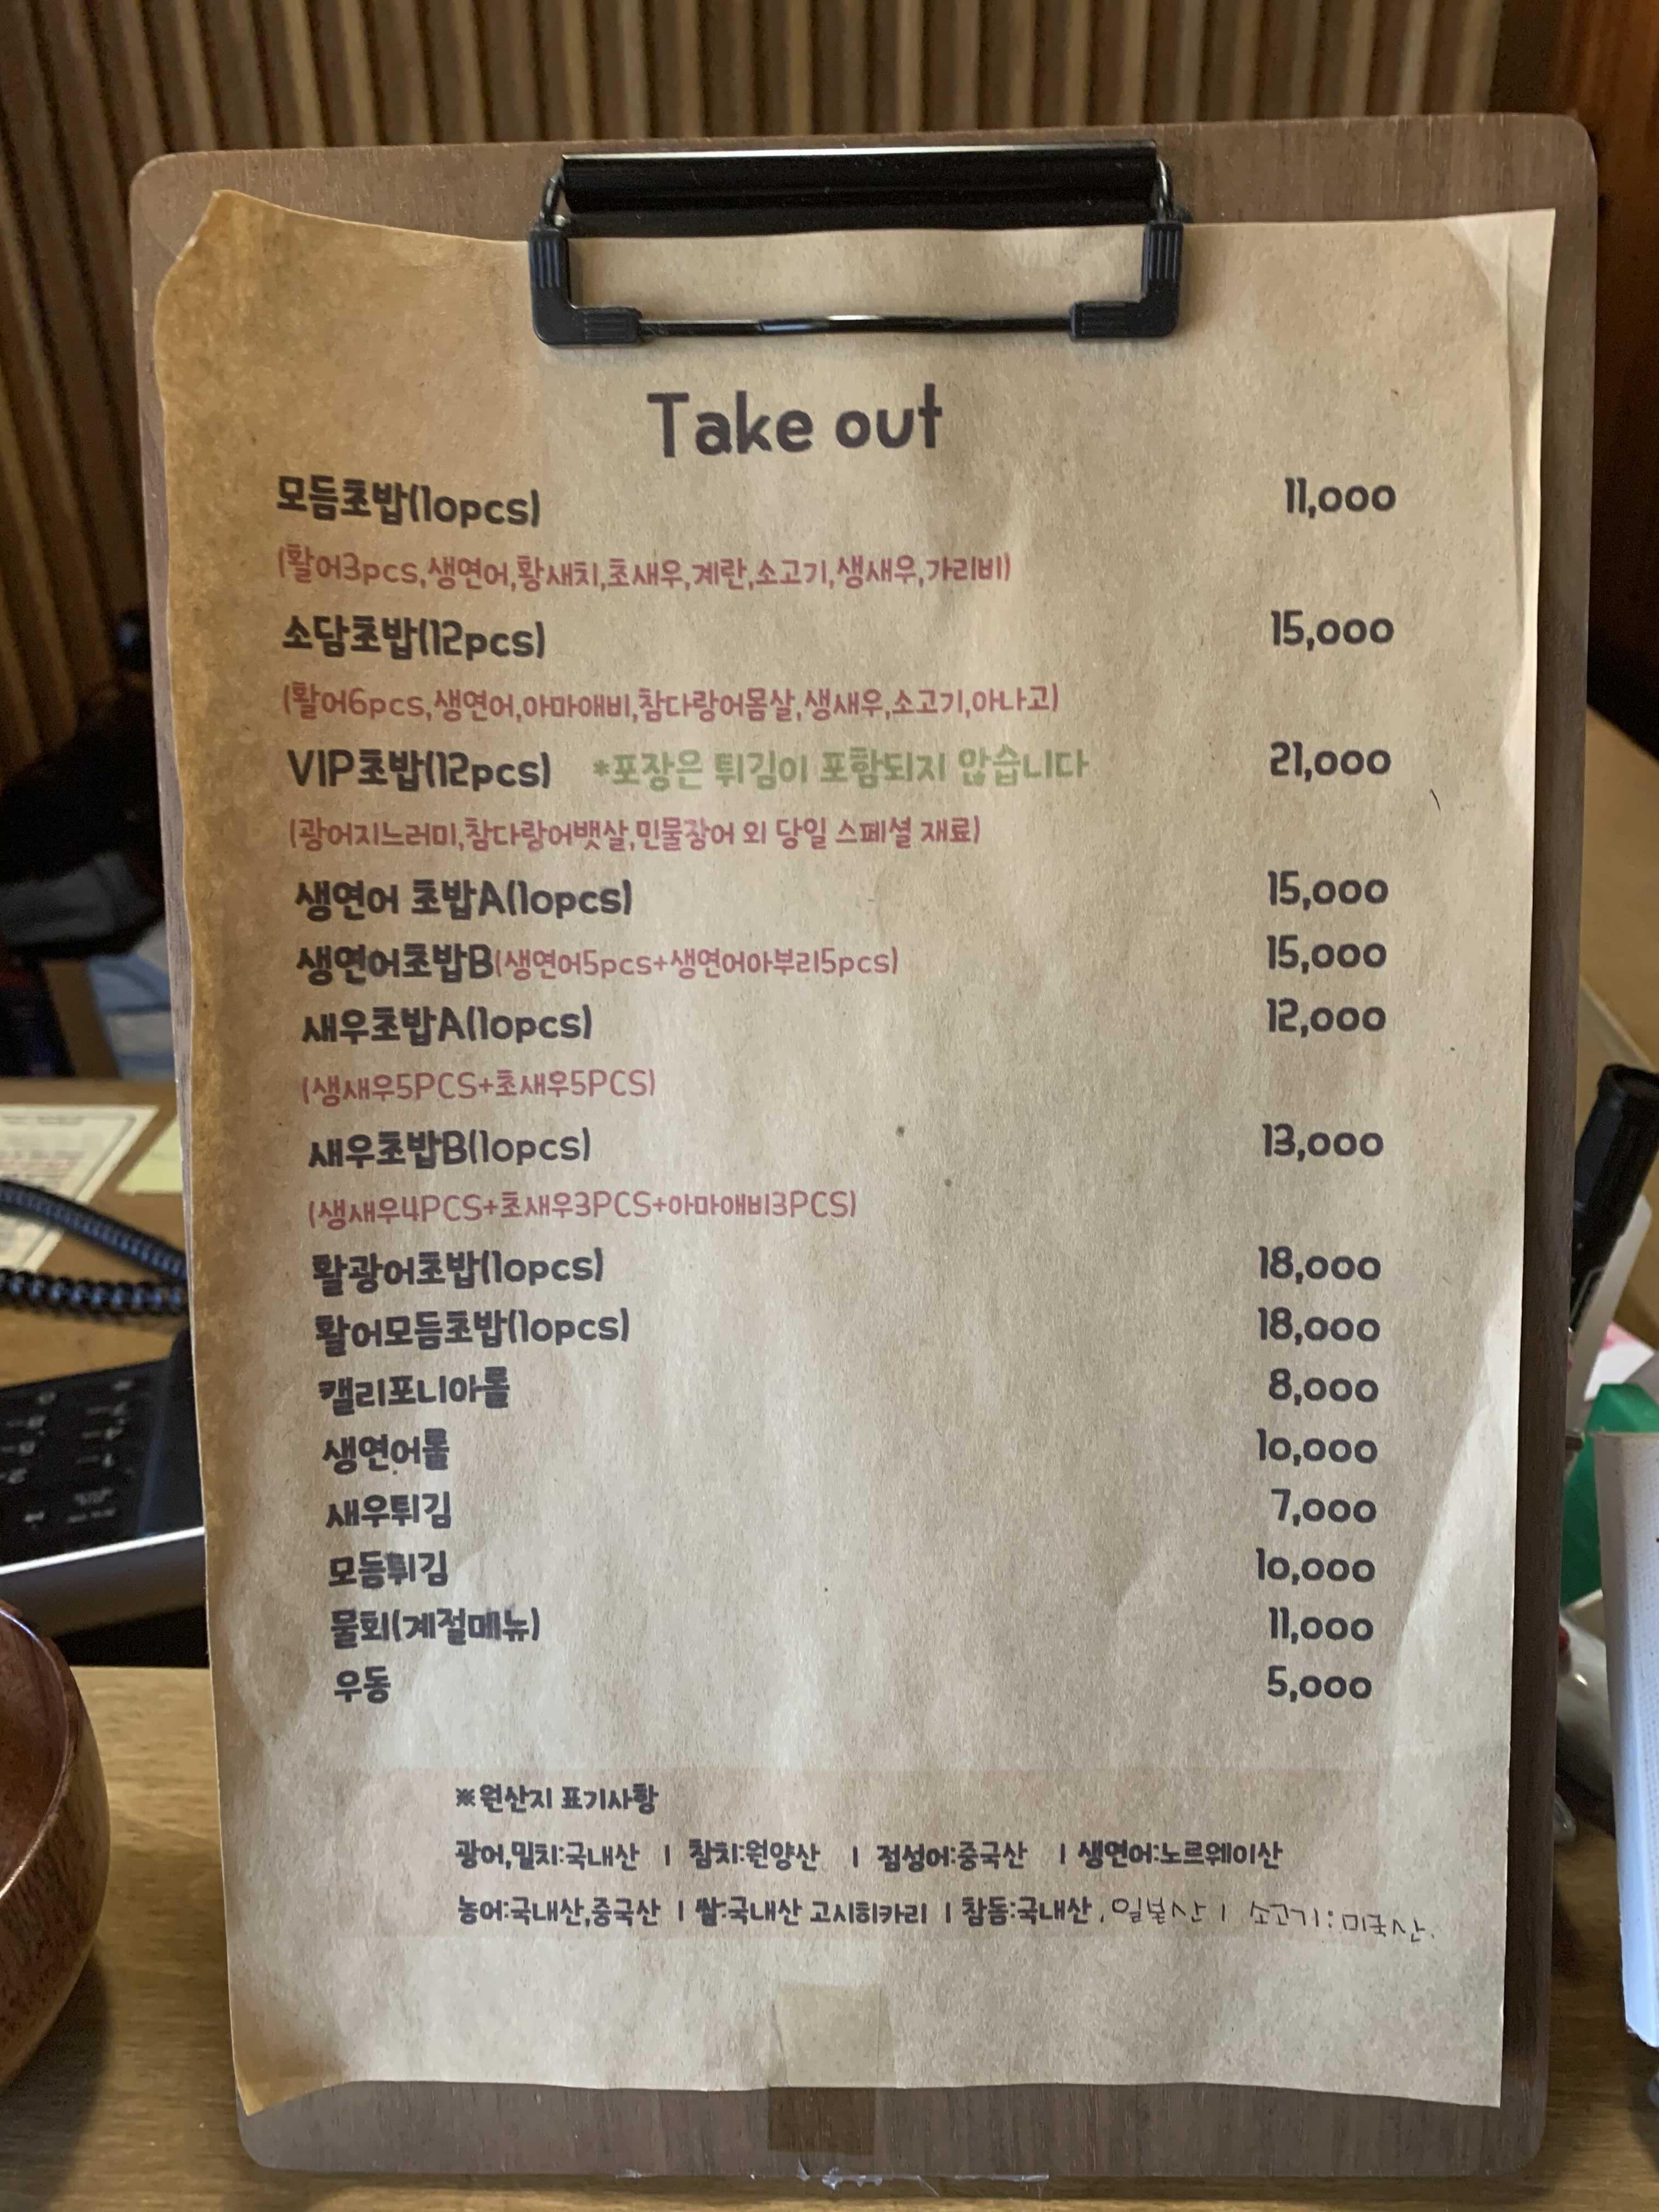 Take out
모듬초밥(10pcs) 11,000
(활어3pcs,생연어,황새치,초새우,계란,소고기,생새우,가리비)
소담초밥(12pcs) 15,000
(활어6pcs,생연어,아마애비,참다랑어몸살,생새우,소고기,아나고)
VIP초밥(12pcs) *포장은 튀김이 포함되지 않습니다 21,000
(광어지느러미,참다랑어뱃살,민물장어 외 당일 스페셜 재료)
생연어 초밥A(10pcs) 15,000
생연어초밥B(생연어5pcs+생연어아부리5pcs) 15,000
새우초밥A(10pcs) 12,000
(생새우5PCS+초새우5PCS)
새우초밥B(10pcs) 13,000
(생새우4PCS+초새우3PCS+아마애비3PCS)
활광어초밥(10pcs) 18,000
활어모듬초밥(10pcs) 18,000
캘리포니아롤 8,000
생연어롤 10,000
새우튀김 7,000
모듬튀김 10,000
물회(계절메뉴) 11,000
우동 5,000
※원산지 표기사항
광어,밀치:국내산 | 참치:원양산 | 점성어:중국산 | 생연어:노르웨이산
농어:국내산,중국산 | 쌀:국내산 고시히카리 | 참돔:국내산, 일본산 | 소고기:미국산.